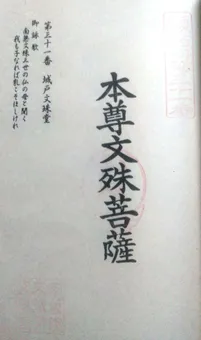 第三十一番 城戸文殊堂
御詠歌
南無文殊三世の仏の母と聞く
我も子なれば乳こそほしけれ
本尊文殊菩薩